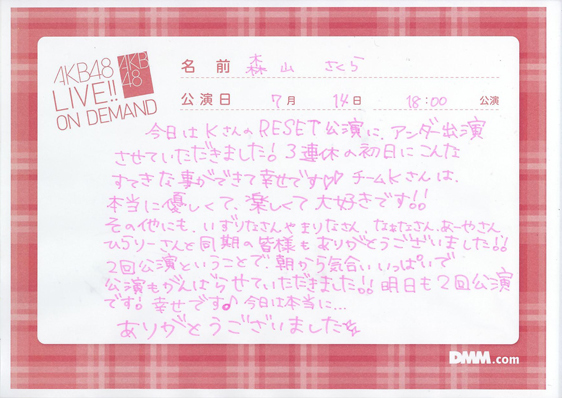 AKB48
LIVE!!
ON DEMAND
AKB
48
名前 森山 さくら
公演日 7月 14日 18:00 公演
今日はKさんのRESET公演に、アンダー出演
させていただきました!3連休の初日にこんな
すてきな事ができて幸せです♡♡チームKさんは、
本当に優しくて、楽しくて大好きです!!
その他にも、いずりなさんやまりなさん、なぁなさん、あーやさん、
ひらりーさんと同期の皆様もありがとうございました!!
2回公演ということで、朝から気合いいっぱいで
公演もがんばらせていただきました!!明日も2回公演
です!幸せです♪今日は本当に…
ありがとうございました☆
DMM.com